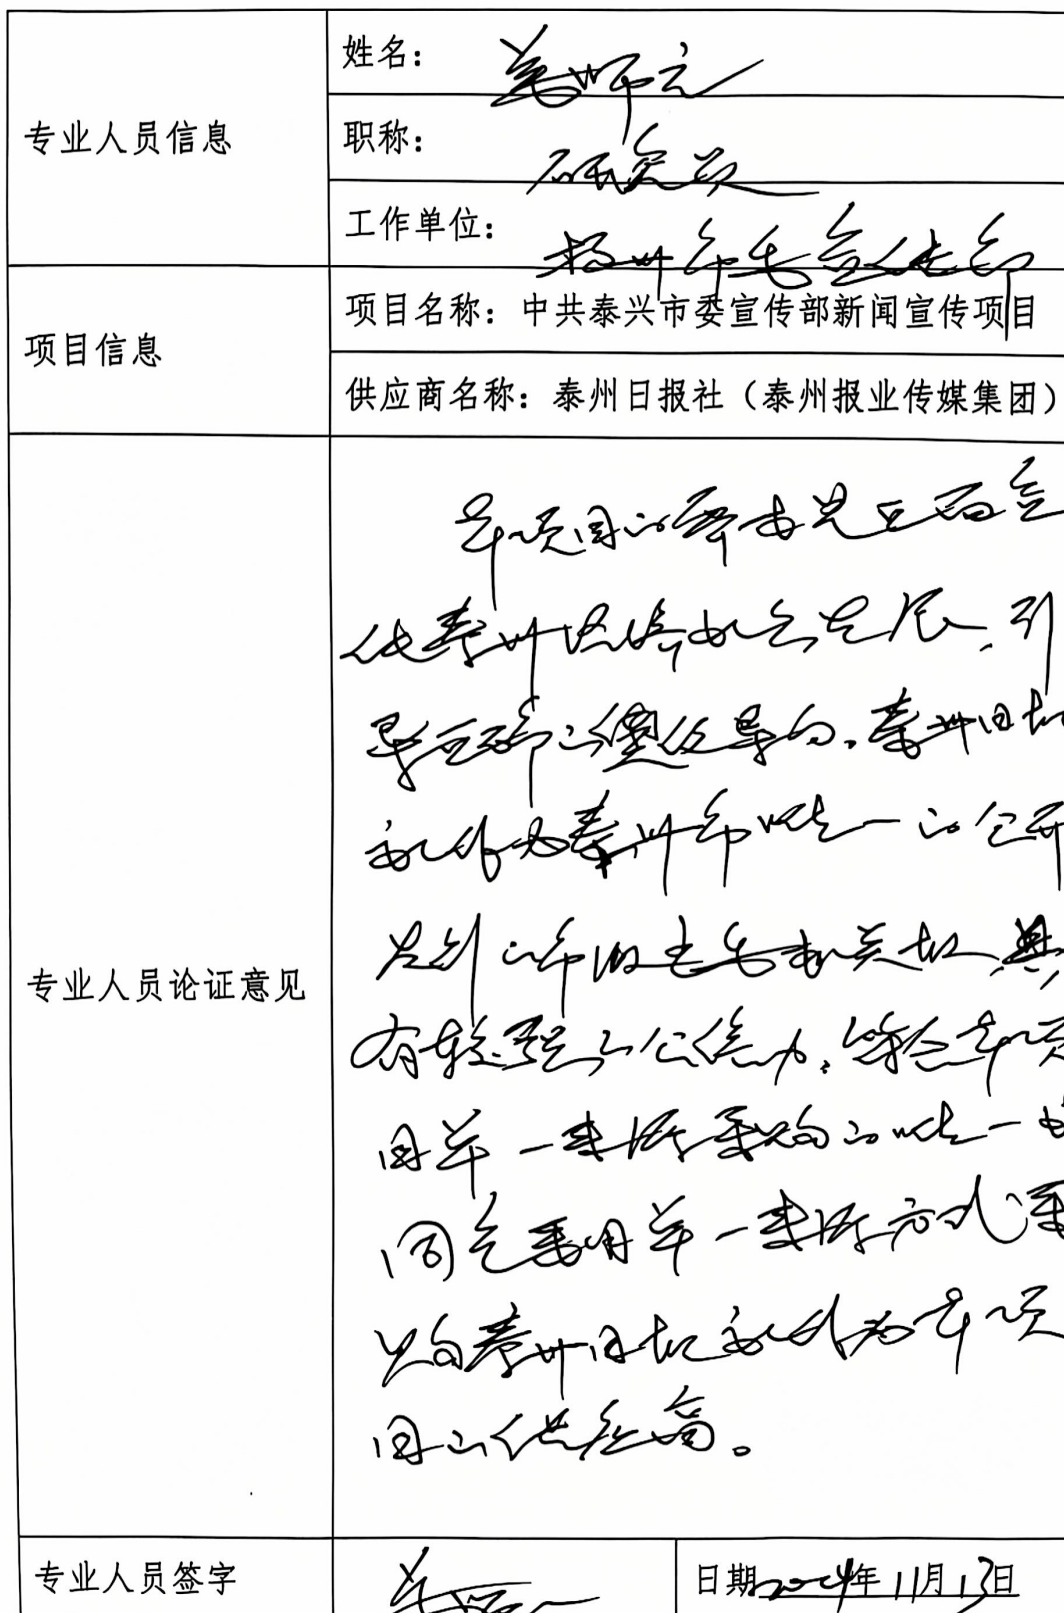 专业人员信息
姓名：
职称：研究员
工作单位：扬州市委宣传部
项目信息
项目名称：中共泰兴市委宣传部新闻宣传项目
供应商名称：泰州日报社（泰州报业传媒集团）
专业人员论证意见
本项目的需求是立面宣
传泰州经济社会发展，引
导正确的舆论导向。泰州日报
社作为泰州市唯一的公开
发行的市级党委机关报，具
有较强的公信力，符合本项
目单一来源采购的唯一性
同意采用单一来源方式采
购泰州日报社作为本项
目的供应商。
专业人员签字
日期2024年11月13日